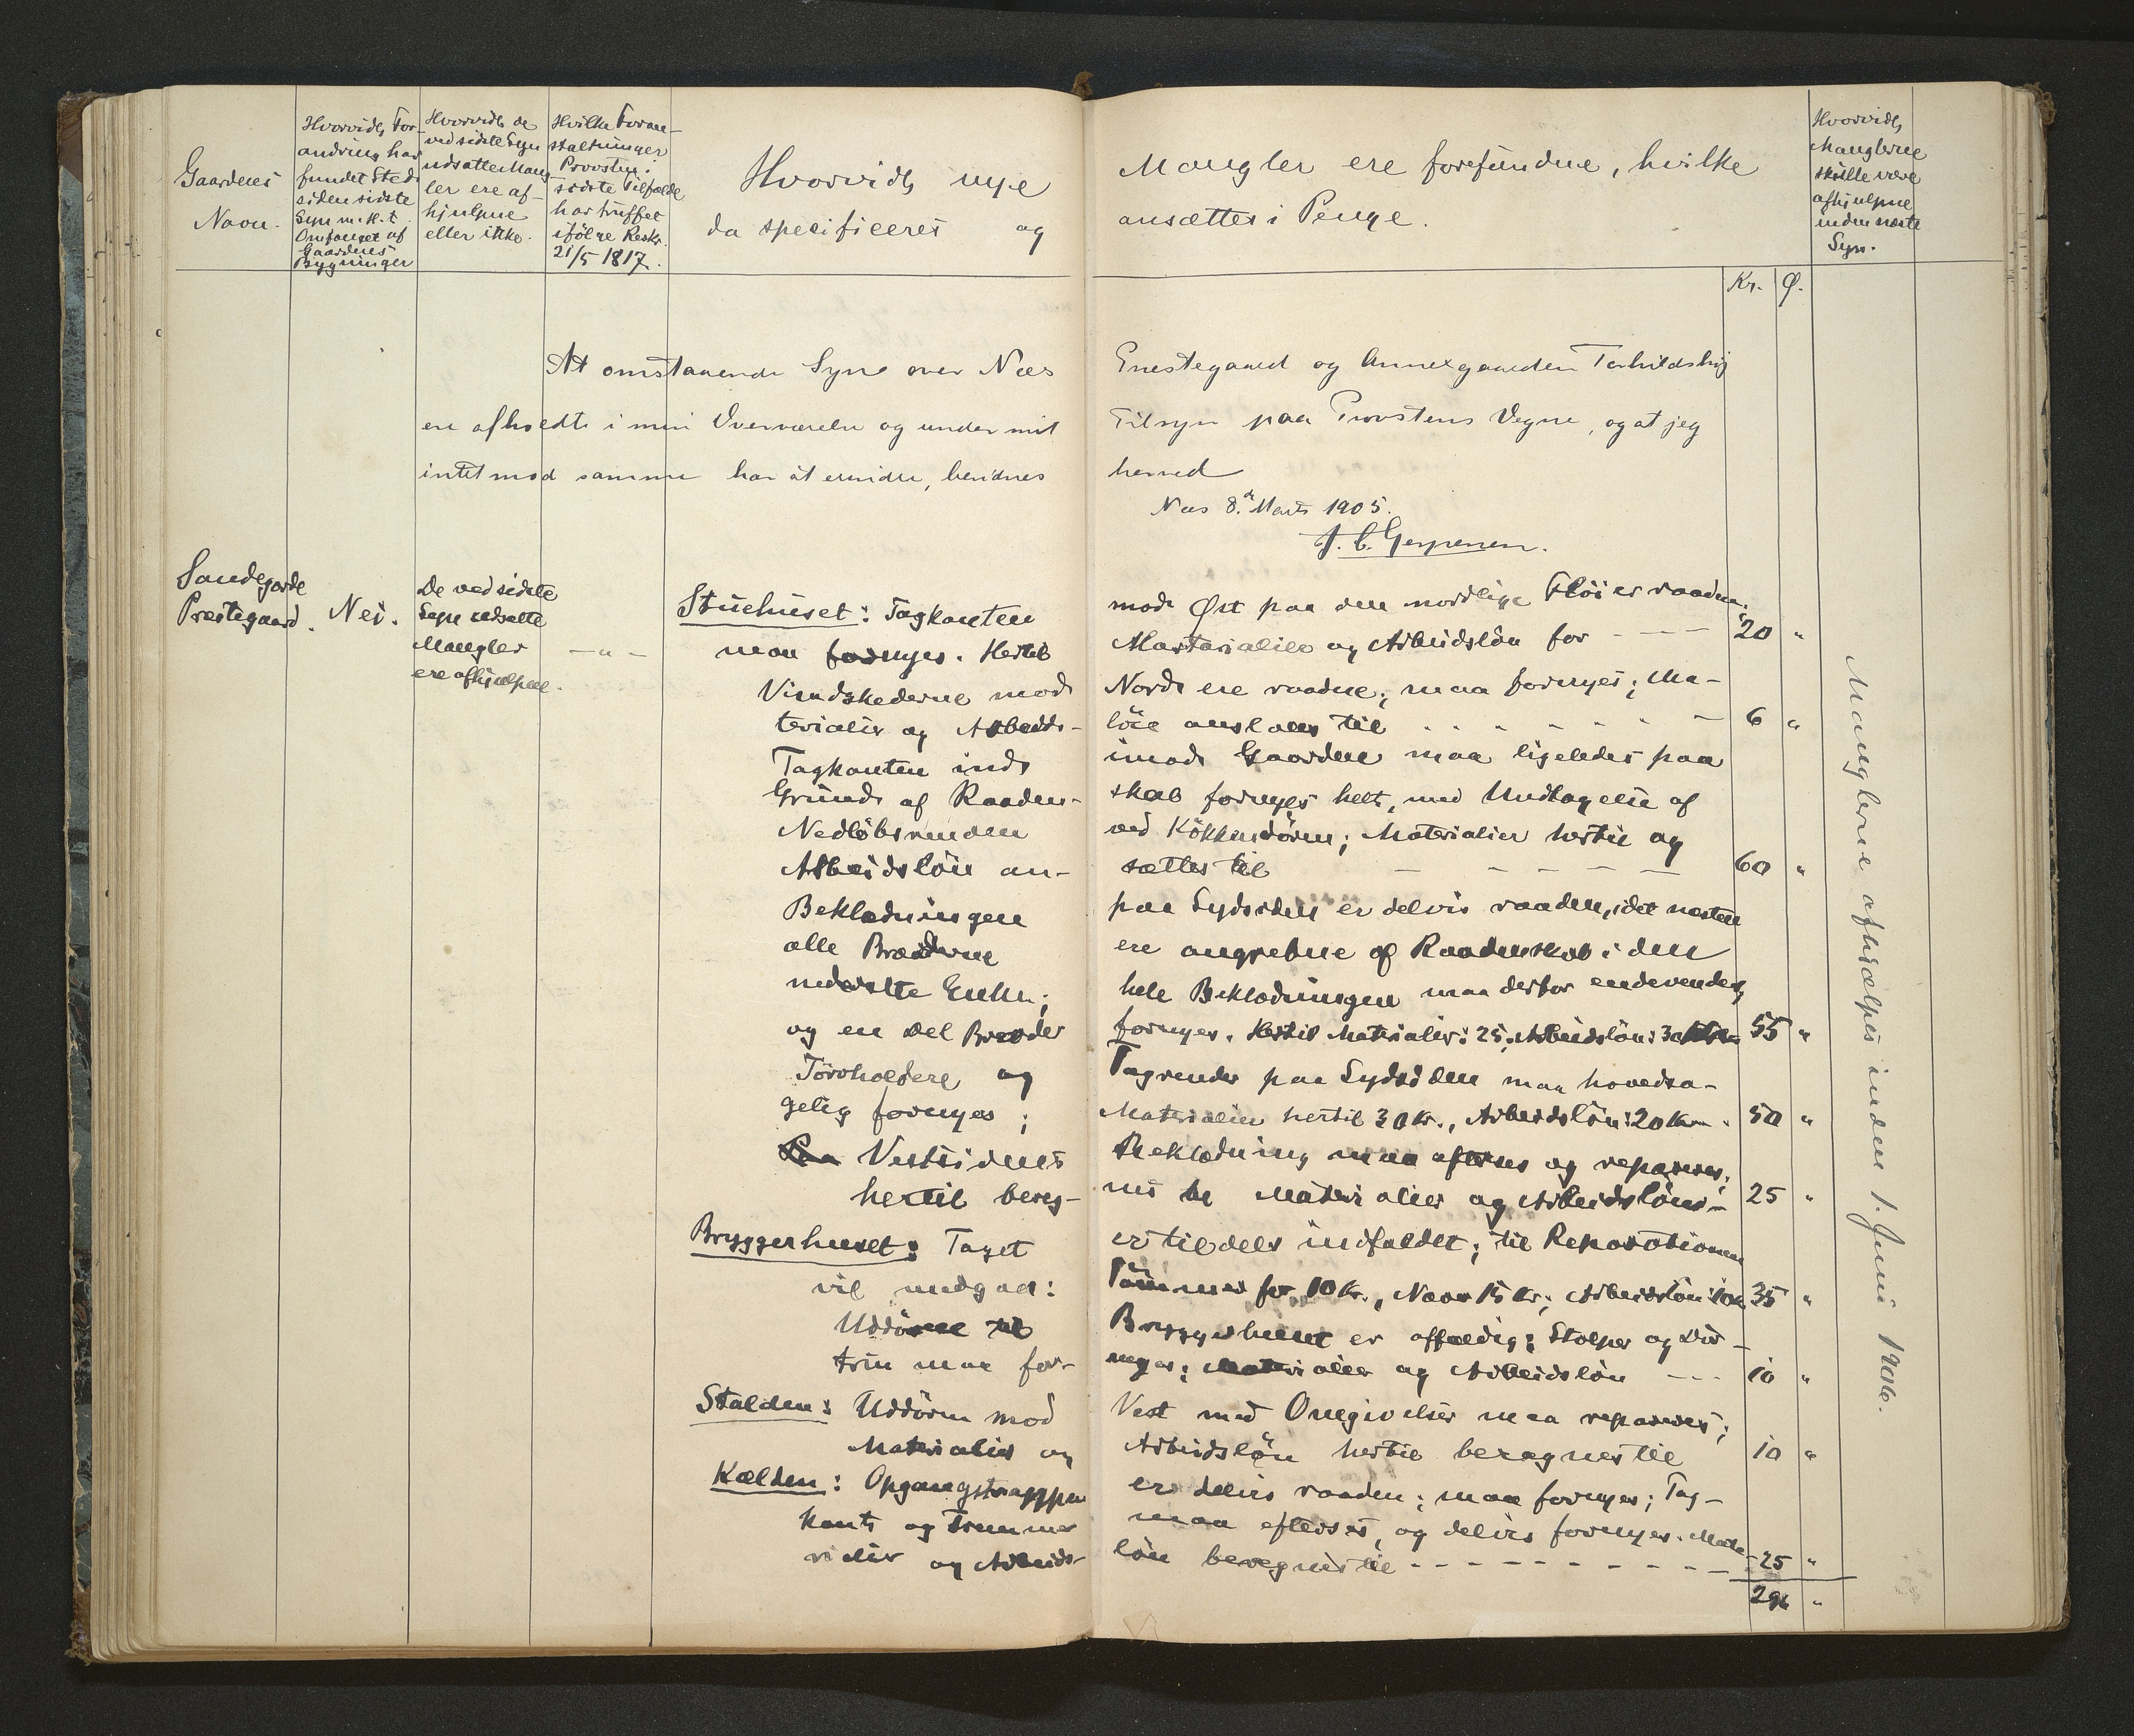 Gaardenes
Navn.
Hvorvidt For-
andring har
fundet Sted
siden sidste
Syn m. H. t.
Omfanget af
Gaardens
Bygninger
Hvorvidt de
ved sidste Syn
udsatte Mang-
ler ere af-
hjulpne
eller ikke.
Hvilke Foran-
staltninger
Provsten i
sidste Tilfælde
har truffet
ifölge Reskr.
21/5 1817.
Hvorvidt nye Mangler ere forefundne, hvilke
da specificeres og ansættes i Penge.
Hvorvidt
Manglerne
skulle være
afhjulpne
inden næste
Syn.
Kr. Ø.
At omstaaende Syn over Næs Præstegaard og Annexgaarden Torhildshøj
ere afholdte i min Overværelse og under mit Tilsyn paa Provstens Vegne, og at jeg
intet mod samme har at erindre, bevidnes herved
Næs 8. Marts 1905.
J. C. Gespersen.
Sandegjerde
Præstegaard.
Nei.
De ved sidste
Syn udsatte
Mangler
ere afhjulpne.
— " —
Stuehuset: Tagkanten mod Øst paa den nordlige Flöi er raaden;
maa fornyes. Hertil Materialier og Arbeidslön for - - - 20 "
Vindskederne mod Nord ere raadne; maa fornyes; Ma-
terialier og Arbeids- lön anslaaes til 6 "
Tagkanten ind imod Gaarden maa ligeledes paa
Grund af Raaden- skab fornyes helt, med Undtagelse af
Nedlöbsrenden ved Kökkendören; Materialier hertil og
Arbeidslön an- sættes til - - - - - 60 "
Beklædningen paa Sydsiden er delvis raaden, idet næsten
alle Brædderne ere angrebne af Raadenskab i den
nederste Ende; hele Beklædningen maa derfor endevendes,
og en Del Brædder fornyes. Hertil Materialier: 25, Arbeidslön: 30 55 "
Törvholdere og Tagrender paa Sydsiden maa hovedsa-
gelig fornyes; Materialier hertil 30 Kr., Arbeidslön: 20 Kr. 50 "
Paa Vestsidens Beklædning maa efterses og repareres;
hertil bereg- nes Materialier og Arbeidslön - 25 "
Bryggerhuset: Taget er tildels indfaldet; til Reparationen
vil medgaa: Tömmer for 10 Kr., Næver 15 Kr., Arbeidslön: 10 Kr. 35 "
Uddören til Bryggerhuset er affældig; Stolper og Dör-
trin maa for- nyes; Materialier og Arbeidslön - - - 10 "
Stalden: Uddören mod Vest med Omgivelser maa repareres;
Materialier og Arbeidslön hertil beregnes til 10 "
Kælden: Opgangstrappen er delvis raaden; maa fornyes; Tag-
kant og Trummer maa efterses, og delvis fornyes. Mate-
rialier og Arbeids- lön beregnes til - - - - - - - - 25 "
296 "
Manglerne afhjælpes inden 1. Juni 1906.